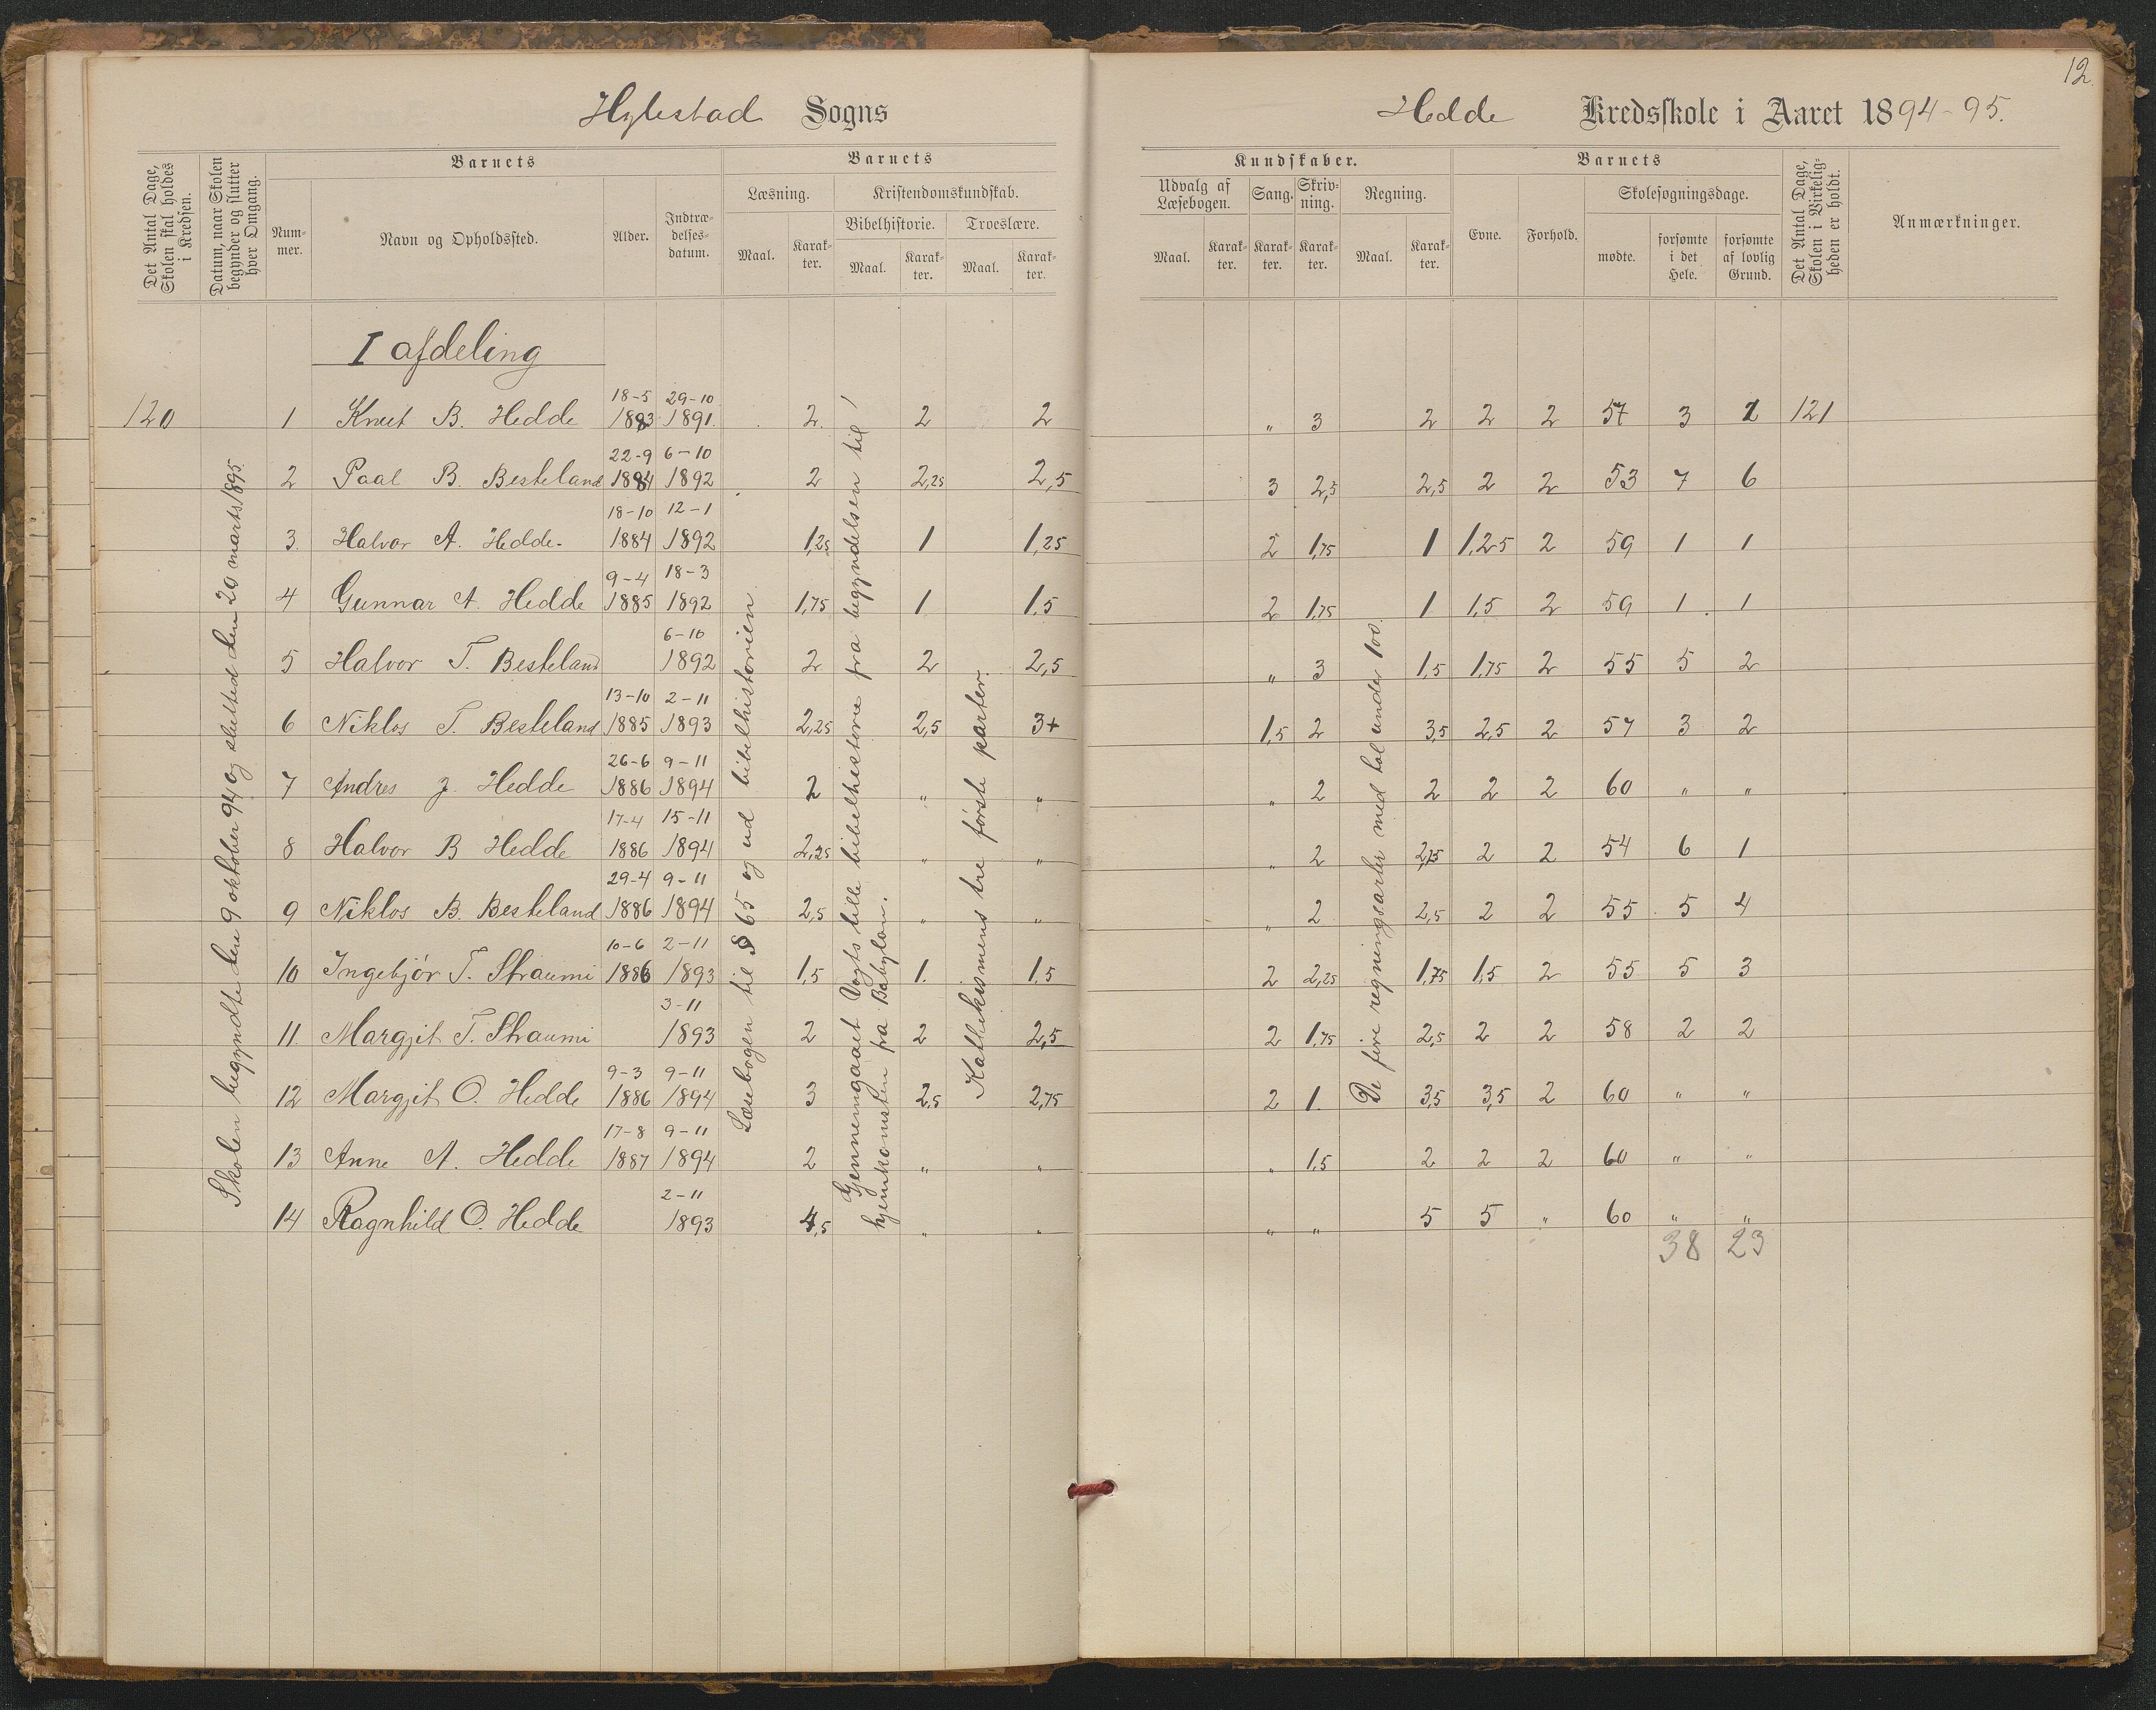 12.
Hylestad Sogns
Hedde Kredsskole i Aaret 1894-95.
Det Antal Dage, Skolen skal holdes i Kredsen.
Datum, naar Skolen begynder og slutter hver Omgang.
Barnets
Nummer.
Navn og Opholdssted.
Alder.
Indtrædelsesdatum.
Barnets
Læsning.
Maal.
Karakter.
Kristendomskundskab.
Bibelhistorie.
Maal.
Karakter.
Troeslære.
Maal.
Karakter.
Kundskaber.
Udvalg af Læsebogen.
Maal.
Karakter.
Sang.
Karakter.
Skrivning.
Karakter.
Regning.
Maal.
Karakter.
Barnets
Evne.
Forhold.
Skolesøgningsdage.
mødte.
forsømte i det Hele.
forsømte af lovlig Grund.
Det Antal Dage, Skolen i Virkeligheden er holdt.
Anmærkninger.
I afdeling
120 1 Knut B. Hedde 18-5 1883 29-10 1891. 2. 2 2 " 3 2 2 2 57 3 1 121
2 Paal B. Besteland 22-9 1884 6-10 1892 2 2,25 2,5 3 2,5 2,5 2 2 53 7 6
3. Halvor A. Hedde. 18-10 1884 12-1 1892 1,25 1 1,25 2 1,75 1 1,25 2 59 1 1
4 Gunnar A. Hedde 9-4 1885 18-3 1892 1,75 1 1,5 2 1,75 1 1,5 2 59 1 1
5 Halvor T. Besteland 6-10 1892 2 2 2,5 " 3 1,5 1,75 2 55 5 2
6 Niklos T. Besteland 13-10 1885 2-11 1893 2,25 2,5 3+ 1,5 2 3,5 2,5 2 57 3 2
7 Andres J. Hedde 26-6 1886 9-11 1894 2 " " " 2 2 2 2 60 " "
8 Halvor B Hedde 17-4 1886 15-11 1894 2,25 " " " 2 2,75 2 2 54 6 1
9 Niklos B. Besteland 29-4 1886 9-11 1894 2,5 " " " 2 2,5 2 2 55 5 4
10 Ingebjør T. Straumi 10-6 1886 2-11 1893 1,5 1. 1,5 2 2,25 1,75 1,5 2 55 5 3
11. Margjit T. Straumi 3-11 1893 2 2 2,5 2 1,75 2,5 2 2 58 2 2
12 Margjit O. Hedde 9-3 1886 9-11 1894 3 2,5 2,75 2 1. 3,5 3,5 2 60 " "
13 Anne A. Hedde 17-8 1887 9-11 1894 2 " " " 1,5 2 2 2 60 " "
14 Ragnhild O. Hedde 2-11 1893 4,5 " " " " 5 5 " 60 " "
38 23
Skolen begyndte den 9 oktober 94 og sluttede den 20 marts 1895.
Læsebogen til § 65 og ud bibelhistorien
Gjennemgaaet Vogts lille bibelhistorie fra begyndelsen til
hjemkomsten fra Babylon.
Katekismens tre første parter.
De fire regningsarter med tal under 100.